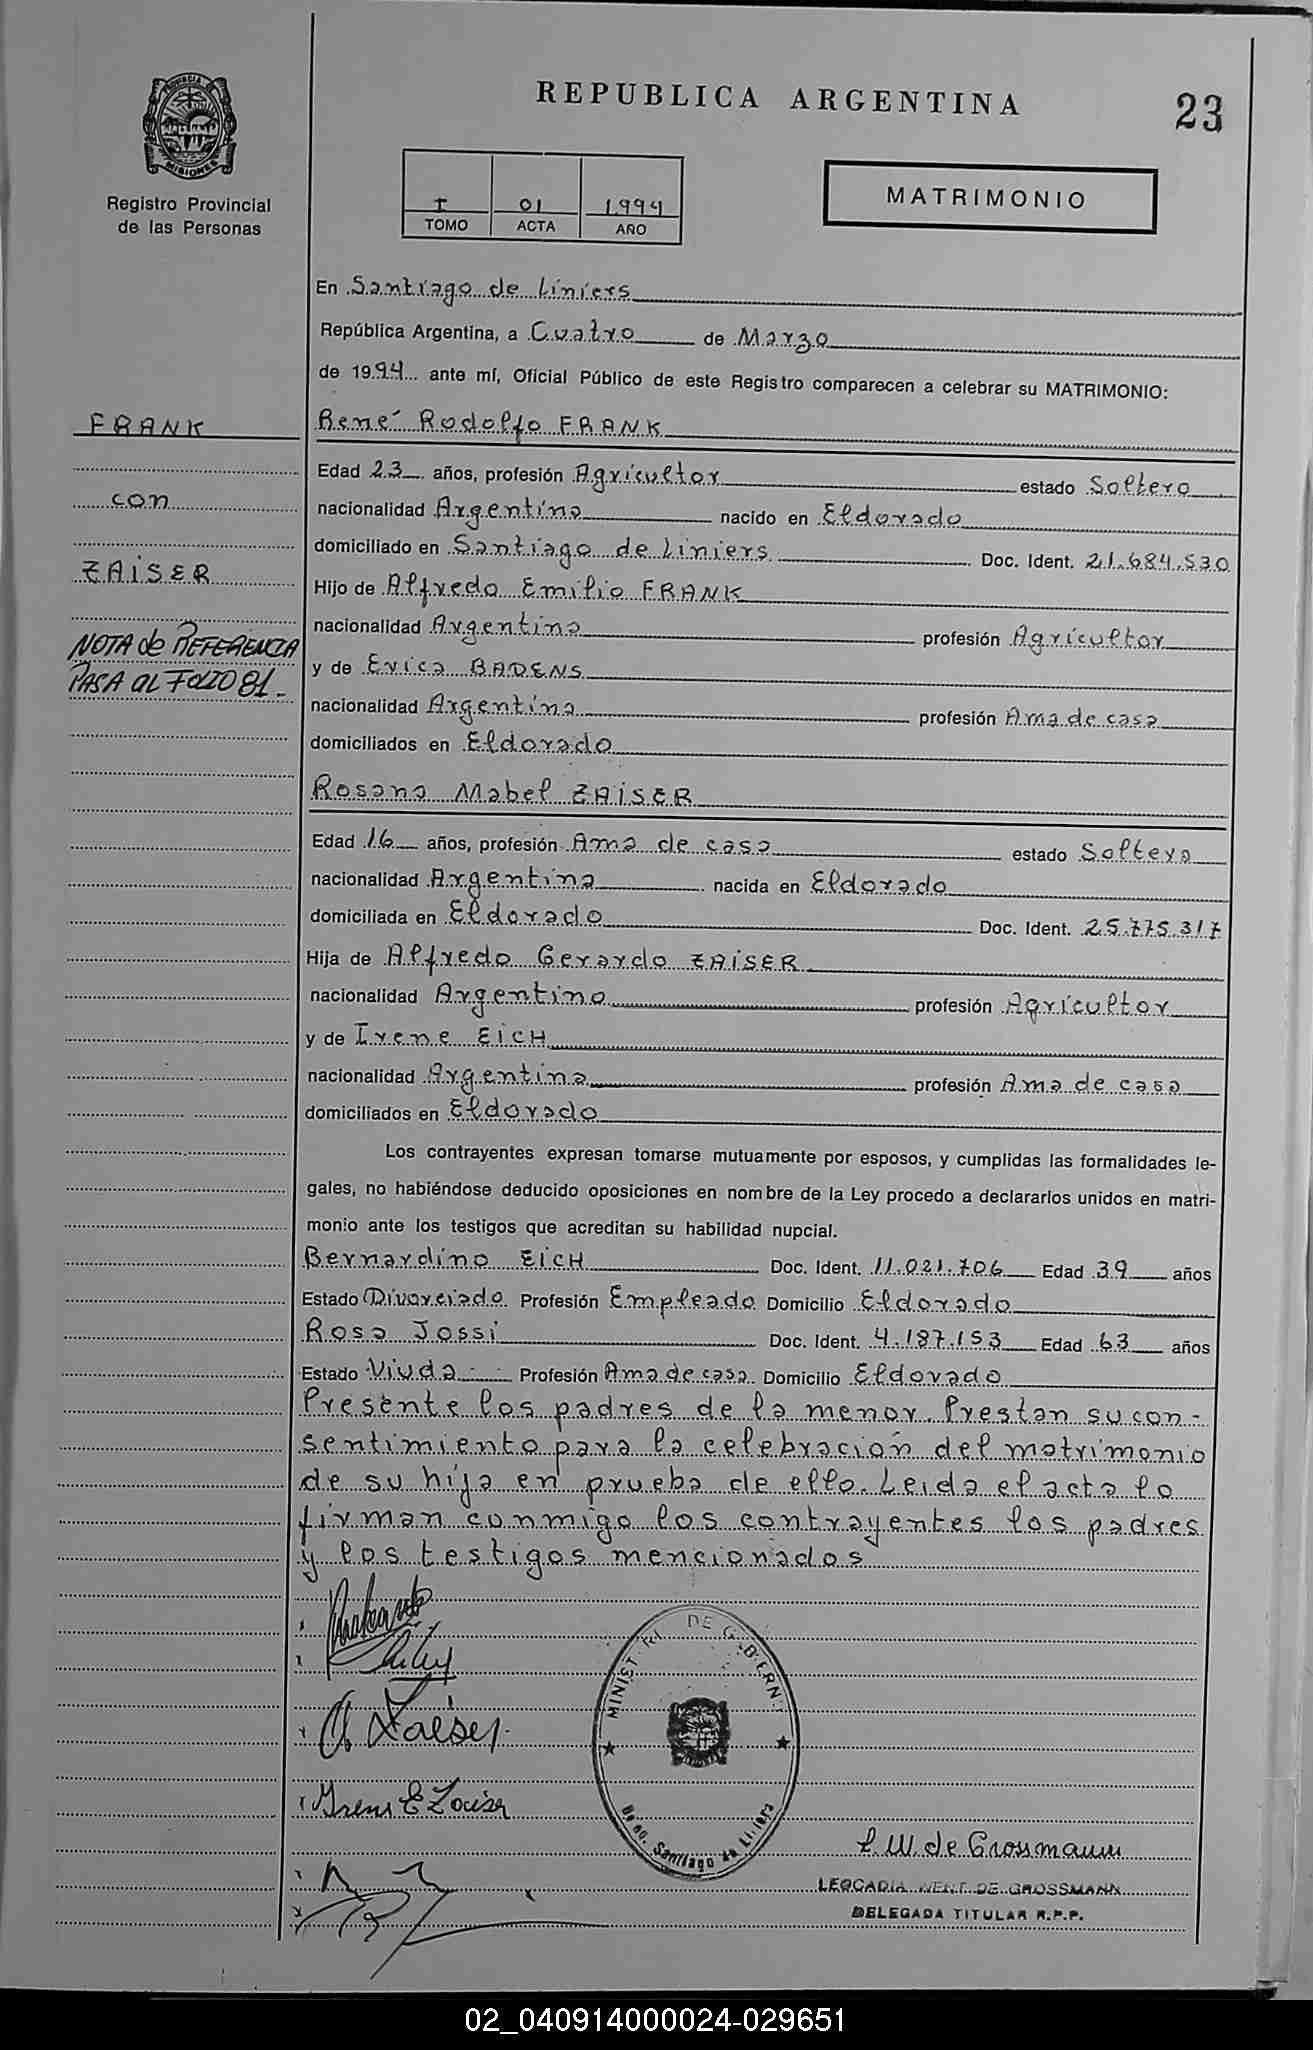 REPUBLICA ARGENTINA
23
PROVINCIA DE
MISIONES
Registro Provincial
de las Personas
I 01 1994
TOMO ACTA AÑO
MATRIMONIO
En Santiago de Liniers
República Argentina, a Cuatro de Marzo
de 1994 ante mí, Oficial Público de este Registro comparecen a celebrar su MATRIMONIO:
FRANK
con
ZAiSER
NOTA de REFERENCIA
PASA AL FOLIO 81.-
René Rodolfo FRANK
Edad 23 años, profesión Agricultor estado Soltero
nacionalidad Argentina nacido en Eldorado
domiciliado en Santiago de Liniers Doc. Ident. 21.684.530
Hijo de Alfredo Emilio FRANK
nacionalidad Argentina profesión Agricultor
y de Erica BADENS
nacionalidad Argentina profesión Ama de casa
domiciliados en Eldorado
Rosana Mabel ZAiSER
Edad 16 años, profesión Ama de casa estado Soltera
nacionalidad Argentina nacida en Eldorado
domiciliada en Eldorado Doc. Ident. 25.775.317
Hija de Alfredo Gerardo ZAiSER
nacionalidad Argentino profesión Agricultor
y de Irene EiCH
nacionalidad Argentina profesión Ama de casa
domiciliados en Eldorado
Los contrayentes expresan tomarse mutuamente por esposos, y cumplidas las formalidades le-
gales, no habiéndose deducido oposiciones en nombre de la Ley procedo a declararlos unidos en matri-
monio ante los testigos que acreditan su habilidad nupcial.
Bernardino EiCH Doc. Ident. 11.021.706 Edad 39 años
Estado Divorciado Profesión Empleado Domicilio Eldorado
Rosa Jossi Doc. Ident. 4.187.153 Edad 63 años
Estado Viuda Profesión Ama de casa Domicilio Eldorado
Presente los padres de la menor. Prestan su con-
sentimiento para la celebración del matrimonio
de su hija en prueba de ello. Leida el acta lo
firman conmigo los contrayentes los padres
y los testigos mencionados
A. Zaiser
Irene E Zaiser
MINISTERI DE GOBIERNO
Deleg. Santiago de Liniers
L. W. de Grossmann
LEOCADIA WENT. DE GROSSMANN
DELEGADA TITULAR R.P.P.
02_040914000024-029651